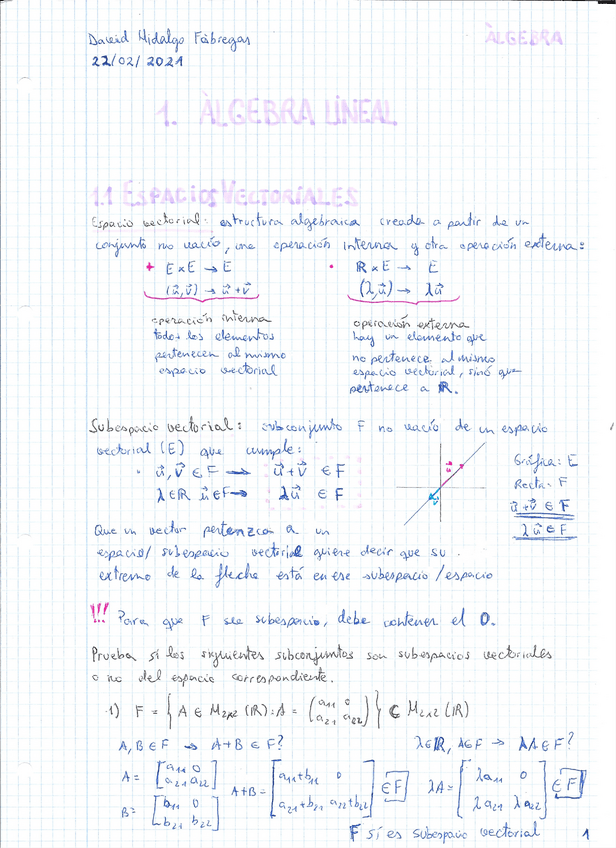 David Hidalgo Fàbregas
ÀLGEBRA
22/02/2021
1. ÀLGEBRA LINEAL
1.1 ESPACIOS VECTORIALES
Espacio vectorial: estructura algebraica creada a partir de un
conjunto no vacío, una operación interna y otra operación externa:
+ E x E → E
(u⃗, v⃗) → u⃗ + v⃗
operación interna
todos los elementos
pertenecen al mismo
espacio vectorial
· ℝ x E → E
(λ, u⃗) → λu⃗
operación externa
hay un elemento que
no pertenece al mismo
espacio vectorial, sinó que
pertenece a ℝ.
Subespacio vectorial: subconjunto F no vacío de un espacio
vectorial (E) que cumple:
· u⃗, v⃗ ∈ F → u⃗ + v⃗ ∈ F
λ ∈ ℝ u⃗ ∈ F → λu⃗ ∈ F
u⃗
v⃗
Gráfica: E
Recta: F
u⃗ + v⃗ ∈ F
λu⃗ ∈ F
Que un vector pertenzca a un
espacio/subespacio vectorial quiere decir que su
extremo de la flecha está en ese subespacio/espacio
!!! Para que F sea subespacio, debe contener el 0.
Prueba si los siguientes subconjuntos son subespacios vectoriales
o no del espacio correspondiente.
1) F = { A ∈ M2x2 (ℝ): A = (a11 0 / a21 a22) } ⊂ M2x2 (ℝ)
A, B ∈ F → A+B ∈ F?
λ ∈ ℝ, A ∈ F → λA ∈ F?
A = [a11 0 / a21 a22]
B = [b11 0 / b21 b22]
A+B = [a11+b11 0 / a21+b21 a22+b22] ∈ F
λA = [λa11 0 / λa21 λa22] ∈ F
F sí es subespacio vectorial
1